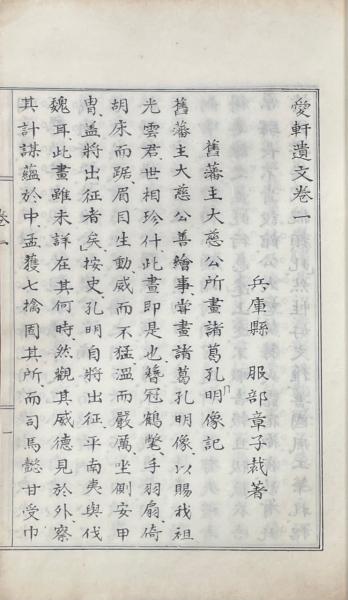 愛軒遺文卷一
兵庫縣 服部章子裁著
舊藩主大慈公所畫諸葛孔明像記
舊藩主大慈公善繪事嘗畫諸葛孔明像以賜我祖
光雲君世相珍什此畫即是也簪冠鶴氅手羽扇倚
胡床而踞眉目生動威而不猛溫而嚴厲坐側安甲
冑蓋將出征者矣按史孔明自將出征平南夷與伐
魏耳此畫雖未詳在其何時然觀其威德見於外察
其計謀蘊於中孟獲七擒固其所而司馬懿甘受巾
卷一
一